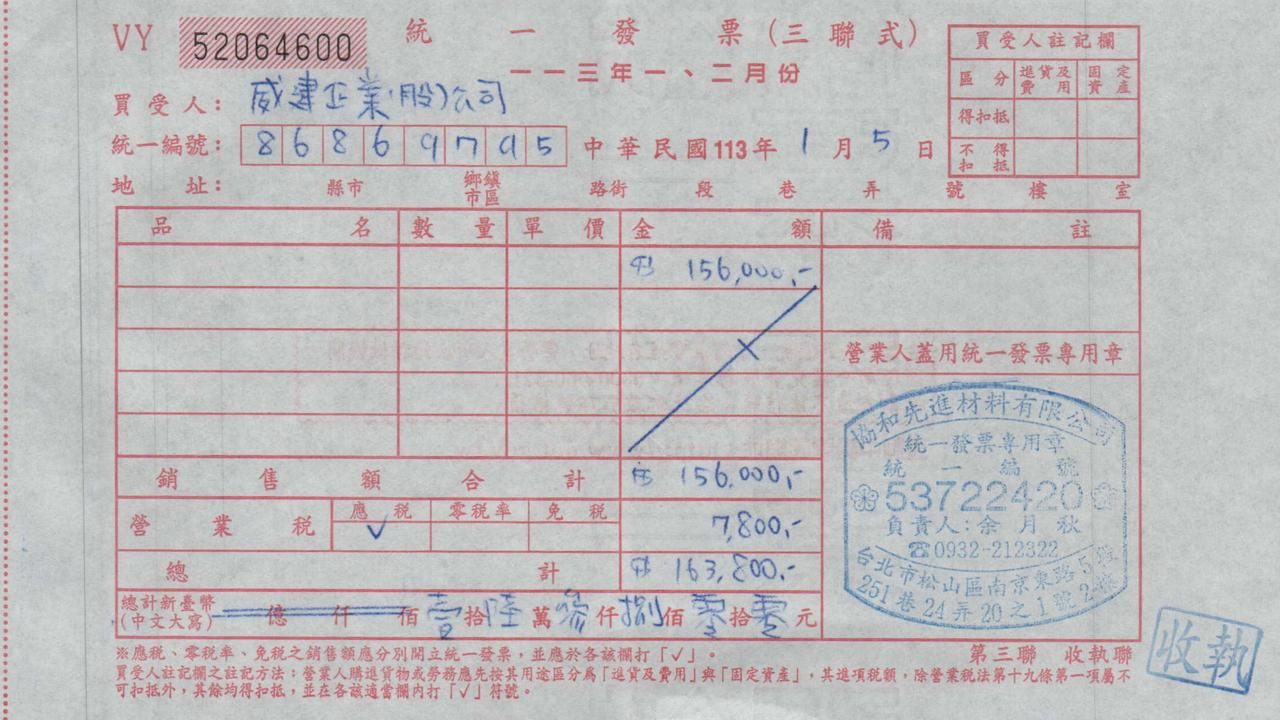 VY 52064600 統一發票(三聯式)
一一三年一、二月份
買受人註記欄
區分 進貨及費用 固定資產
得扣抵
不得扣抵
買受人: 威建企業(股)公司
統一編號: 86869795 中華民國113年1月5日
地址: 縣市 鄉鎮市區 路街 段 巷 弄 號 樓 室
品名 數量 單價 金額 備註
156,000,-
營業人蓋用統一發票專用章
銷售額合計 156,000,-
營業稅 應稅 零稅率 免稅 7,800,-
✓
總計 163,800,-
總計新臺幣(中文大寫) 億 仟 佰 壹拾陸萬參仟捌佰零拾零元
協和先進材料有限公司
統一發票專用章
統一編號
53722420
負責人:余月秋
☎0932-212322
台北市松山區南京東路5段
251巷24弄20之1號2樓
※應稅、零稅率、免稅之銷售額應分別開立統一發票,並應於各該欄打「✓」。
第三聯 收執聯
買受人註記欄之註記方法:營業人購進貨物或勞務應先按其用途區分為「進貨及費用」與「固定資產」,其進項稅額,除營業稅法第十九條第一項屬不
可扣抵外,其餘均得扣抵,並在各該適當欄內打「✓」符號。
收執